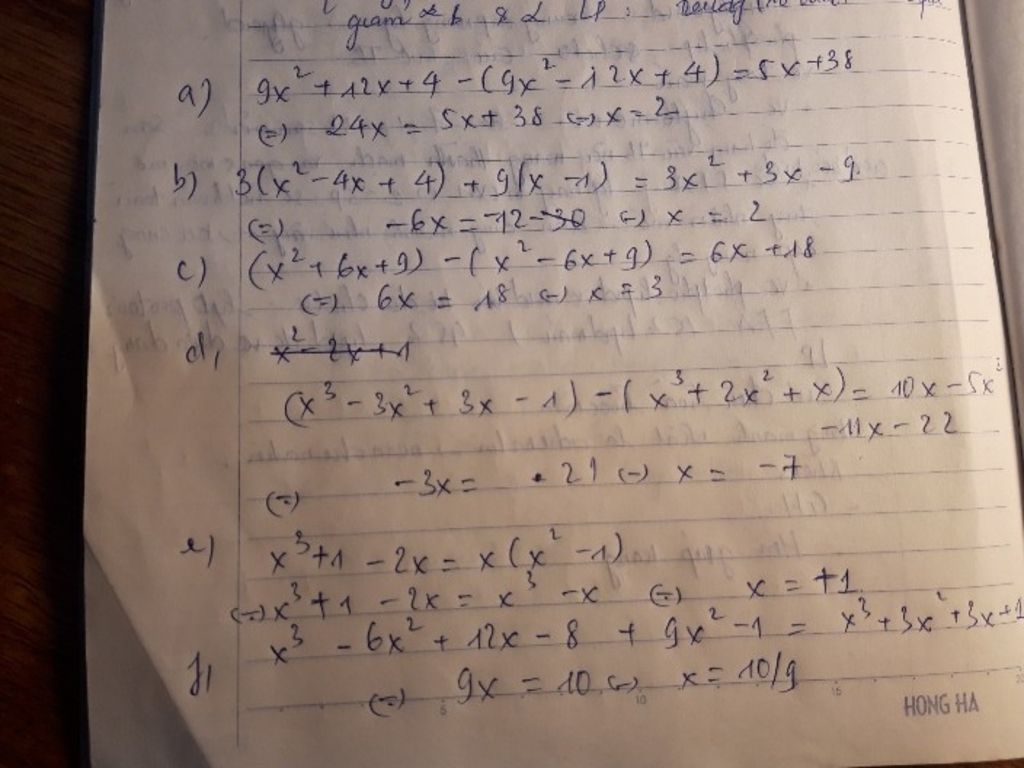 giảm
a) 9x² + 12x + 4 - (9x² - 12x + 4) = 5x + 38
(=) 24x = 5x + 38 (=) x = 2
b) 3(x² - 4x + 4) + 9(x - 1) = 3x² + 3x - 9
(=) -6x = -12 (=) x = 2
c) (x² + 6x + 9) - (x² - 6x + 9) = 6x + 18
(=) 6x = 18 (=) x = 3
d, x² - 2x + 1
(x³ - 3x² + 3x - 1) - (x³ + 2x² + x) = 10x - 5x²
-11x - 22
(=) -3x = 21 (=) x = -7
e) x³ + 1 - 2x = x(x² - 1)
(=) x³ + 1 - 2x = x³ - x (=) x = +1
f, x³ - 6x² + 12x - 8 + 9x² - 1 = x³ + 3x² + 3x + 1
(=) 9x = 10 (=) x = 10/9
5 10 15 20
HONG HA